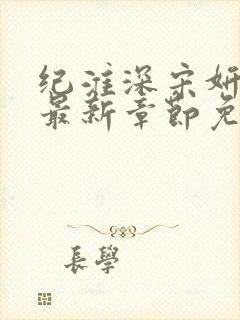 纪淮深宋妍
最新章節免
長學